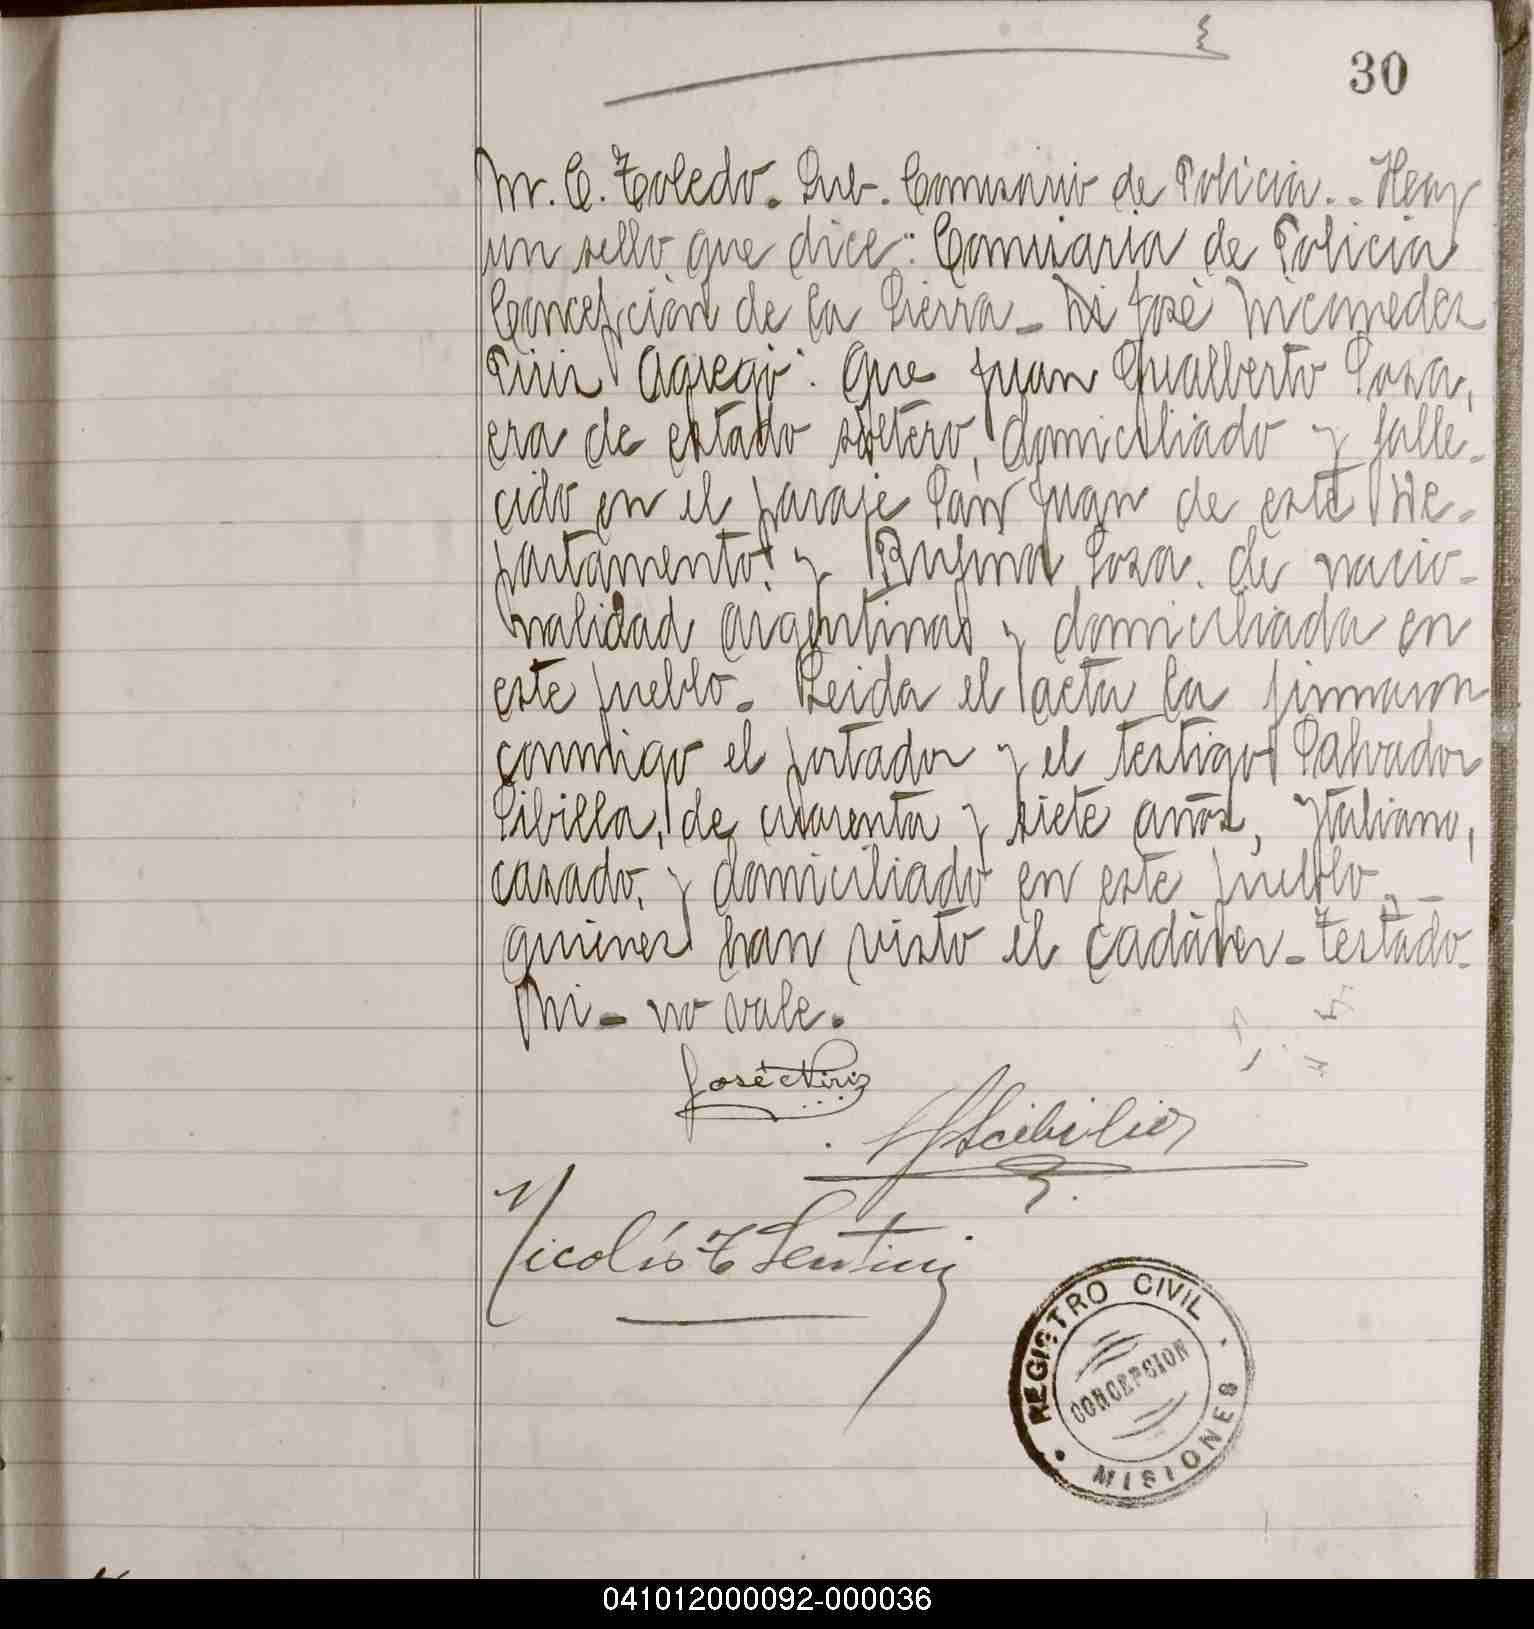 30
M. C. Toledo. Sub. Comisario de Policia.. Hay
un sello que dice: Comisaria de Policia
Concepción de la Sierra_ Ni José Nicomedes
Piriz Agregó: Que Juan Gualberto Sosa,
era de estado soltero, domiciliado y falle-
cido en el paraje San Juan de este De-
partamento. y Rufina Sosa. de nacio-
nalidad argentina y domiciliada en
este pueblo. Leida el acta la firmaron
conmigo el portador y el testigo Salvador
Sibilla, de cuarenta y siete años, Ytaliano,
casado, y domiciliado en este pueblo
quienes han visto el cadáver_ Testado_
Ni_ no vale.
José N Piriz
Scibilia
Nicolás Sentini
REGISTRO CIVIL
CONCEPCION
MISIONES
041012000092-000036